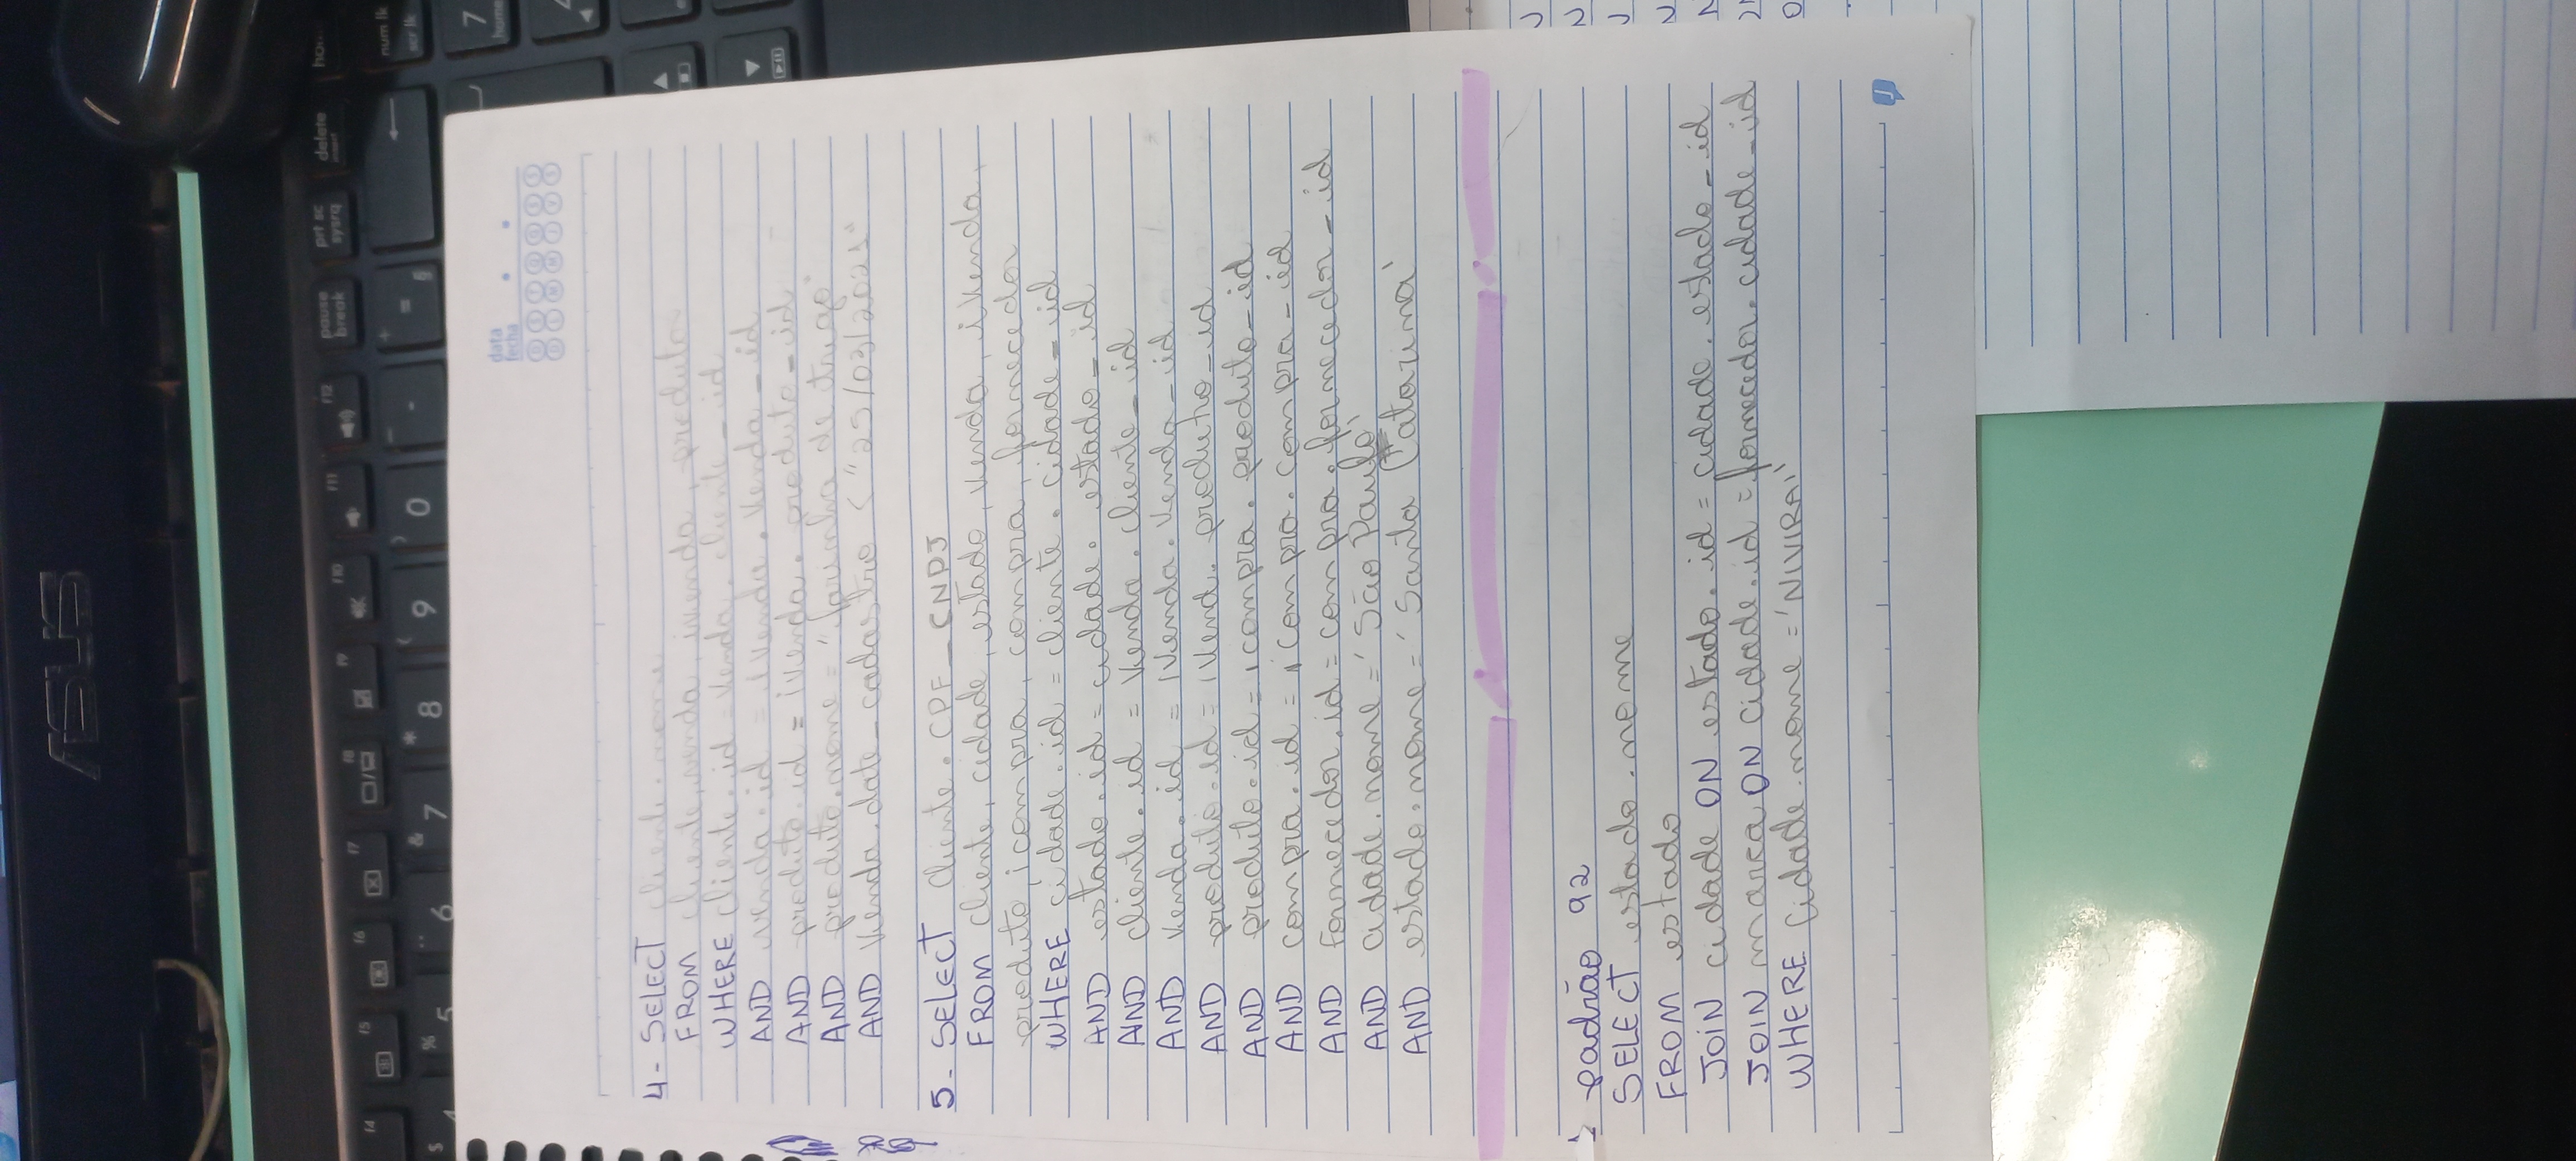 ASUS
f4 f5 f6 f7 f8 f9 f10 f11 f12 pause break prt sc sysrq delete insert
num lk
scr lk
$ 4 % 5 6 & 7 * 8 ( 9 ) 0 - + = §
7 home
data
fecha
4- SELECT cliente.nome
FROM cliente, venda, ivenda, produto
WHERE cliente.id = venda. cliente_id
AND venda.id = ivenda.venda_id
AND produto.id = ivenda.produto_id
AND produto.nome = "farinha de trigo"
AND venda.date_cadastro < "25/03/2021"
5- SELECT cliente.CPF_CNPJ
FROM cliente, cidade, estado, venda, ivenda,
produto, icompra, compra, fornecedor
WHERE cidade.id = cliente.cidade_id
AND estado.id = cidade.estado_id
AND cliente.id = venda.cliente_id
AND venda.id = ivenda.venda_id
AND produto.id = ivend.produtro_id
AND produto.id = icompra.produto_id
AND compra.id = icompra.compra_id
AND fornecedor.id = compra.fornecedor_id
AND cidade.nome = 'São Paulo'
AND estado.nome = 'Santa Catarina'
padrão 92
SELECT estado.nome
FROM estado
JOIN cidade ON estado.id = cidade.estado_id
JOIN marca ON cidade.id = fornecedor.cidade_id
WHERE cidade.nome = 'NIVIRAI'